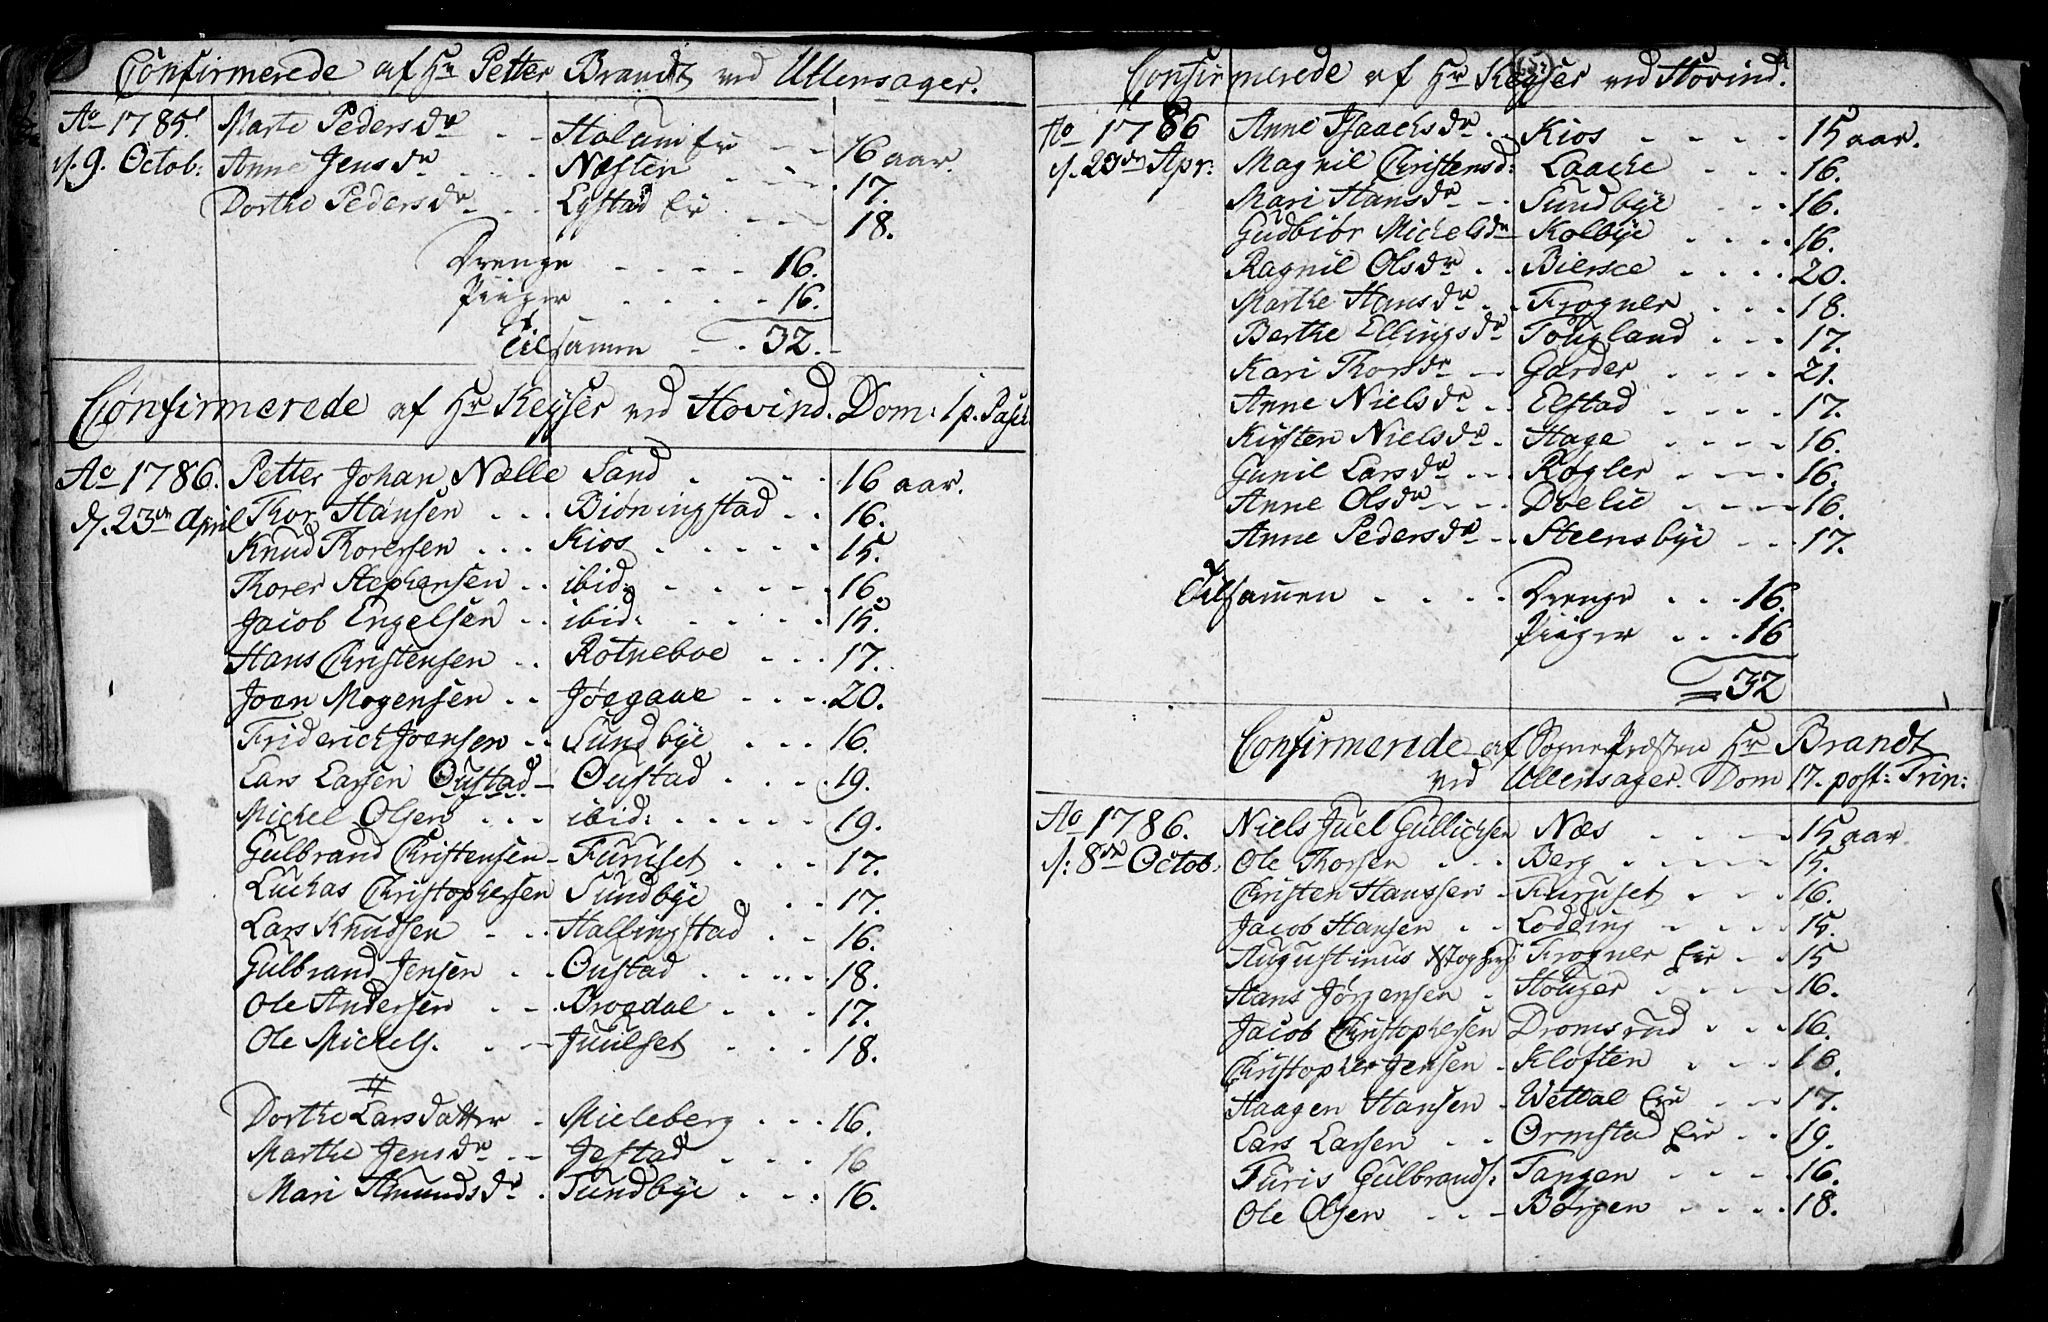 Confirmerede af Hr Petter Brandt ved Ullensager.
Ao 1785
d. 9. Octob:
Marte Pedersdr - - Holum Eie - - 16 aar.
Anne Jensdr - - Næsten - - 17.
Dorthe Pedersdr - - Lystad Eie - - 18.
Drenge - - - - 16.
Piiger - - - - 16.
Tilsamen - - 32.
Confirmerede af Hr Keyser ved Hovind. Dom: 1 p. Pasch
Ao 1786.
d. 23de April
Petter Johan Nælle Sand - - - - 16 aar.
Thor Hansen - - - Biørningstad - - 16.
Knud Thorersen - - - Kios - - - - - 15.
Thorer Stephensen - - ibid: - - - - - 16.
Jacob Engelsen - - ibid: - - - - 15.
Hans Christensen - - Rotneboe - - - 17.
Joen Mogensen - - Jøegaae - - - 20.
Friderich Joensen - - Sundbye - - - 16.
Lars Larsen Oustad - Oustad - - - 19.
Michel Olsen - - - ibid: - - - - - 19.
Gulbrand Christensen - Furuset - - - 17.
Luchas Christophersen Sundbye - - 17.
Lars Knudsen - - - Hallingstad - - 16.
Gulbrand Jensen - - Oustad - - - - 18.
Ole Andersen - - - Brogdal - - - 17.
Ole Michels. - - - Juulset - - - 18.
Dorthe Larsdatter - Mieleberg - - - 16.
Marthe Jensdr - - Jestad - - - 16
Mari Amundsdr - Sundbye - - - 16.
Confirmerede af Hr Keyser ved Hovind.
Ao 1786
d. 23de Apr:
Anne Isaachsdr - - Kios - - - - 15 aar.
Magnil Christensd: Laache - - - 16.
Mari Hansdr - - Sundbye - - 16.
Gudbiør Michelsdr - Kolbye - - - - 16.
Ragnil Olsdr - - Biersee - - - - 20.
Marthe Hansdr - - Frogner - - - 18.
Berthe Ellingsdr Tougland - - - 17.
Kari Thorsdr - - Garder - - - - 21.
Anne Nielsdr - - Elstad - - - - 17.
Kirsten Nielsdr - Hage - - - - 16.
Gunil Larsdr - - Røgler - - - - 16.
Anne Olsdr - - - Doelie - - - - 16.
Anne Pedersdr - - Steensbye - - - 17.
Tilsamen - - - - Drenge - - - 16.
Piiger - - - 16
32
Confirmerede af Sognepræsten Hr Brandt
ved Ullensager. Dom 17. post: Trin:
Ao 1786.
d: 8de Octob:
Niels Juel Gullichsen Næs - - - - 15 aar
Ole Thorsen - - - Berg - - - - - 15.
Christen Hanssen - Furuset - - - 16.
Jacob Hansen - - Lodding - - - - 15.
Augustinus Frogner Eie - - 15
Hans Jørgensen - Houger - - - - 16.
Jacob Christophersen Dromsrud - - - 16.
Christopher Jensen - Kløften - - - 16.
Haagen Hansen - Wettal Eie - - - 17.
Lars Larsen - - Ormstad Eie - - 19.
Furis Gulbrands: Tangen - - - - 16.
Ole Olsen - - - Børgen - - - - 18.